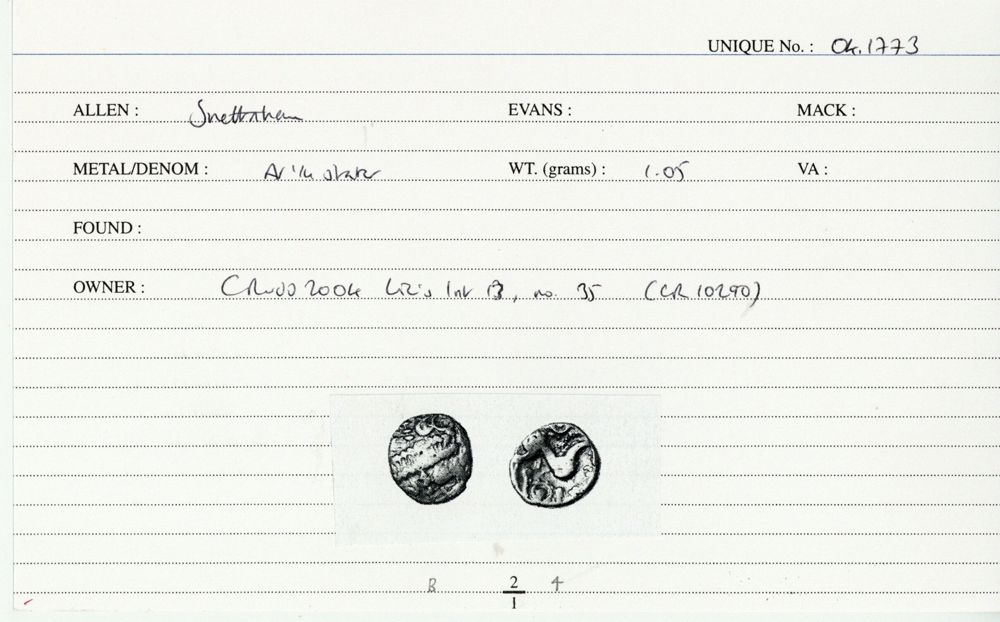 UNIQUE No. : 04.1773
ALLEN : Snettisham EVANS : MACK :
METAL/DENOM : AV 1/4 stater WT. (grams) : 1.05 VA :
FOUND :
OWNER : 2004 Liz's B, no. 35 (CR 10290)
B 2 4
1